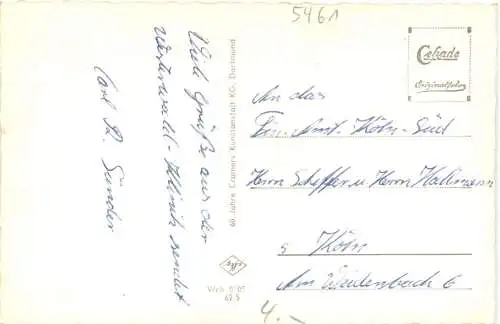 5461
Viele Grüße aus der
Westerwald-Klinik sendet
Carl P. Sünder
60 Jahre Cramers Kunstanstalt KG, Dortmund
Cekade
Originalfoto
An das
Fin.-Amt-Köln-Süd
Herrn Scheffer u. Herrn Hallmann
5 Köln
Am Weidenbach 6
62 5
4.-